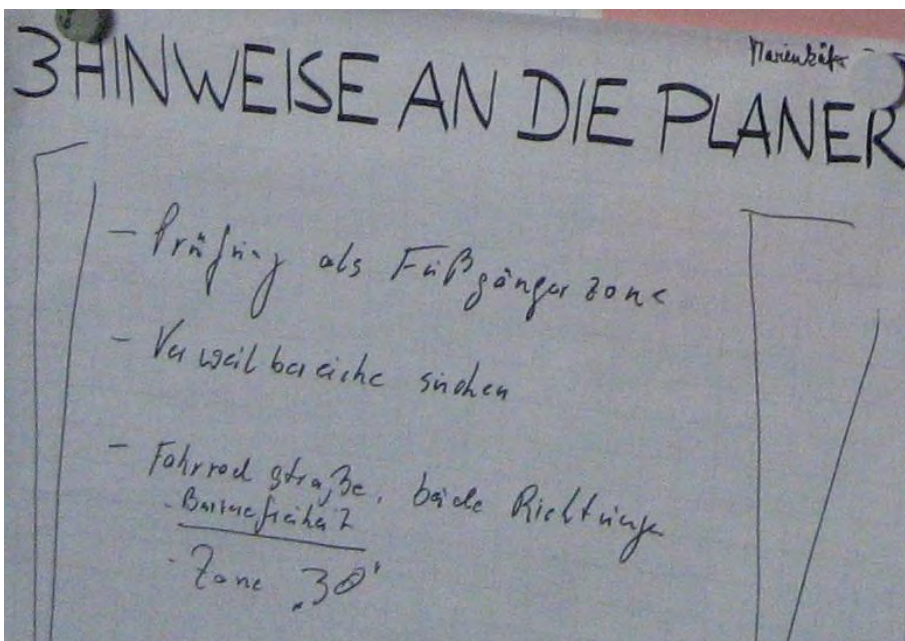 Marienkäfer
3 HINWEISE AN DIE PLANER
- Prüfung als Fußgängerzone
- Verweilbereiche suchen
- Fahrradstraße, beide Richtungen
- Barrierefreiheit
- Zone „30"